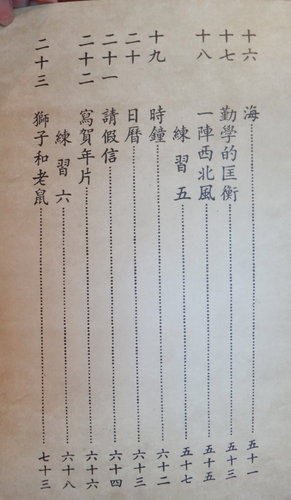 十六 海 五十一
十七 勤學的匡衡 五十三
十八 一陣西北風 五十五
練習五 五十七
十九 時鐘 六十二
二十 日曆 六十三
二十一 請假信 六十四
二十二 寫賀年片 六十六
練習六 六十八
二十三 獅子和老鼠 七十三